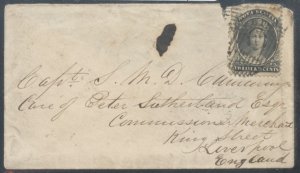 Capt. S. M. D. Cumming
Care of Peter Sutherland Esqr
Commission Merchant
King Street
Liverpool
England
NOVA SCOTIA
CENTS